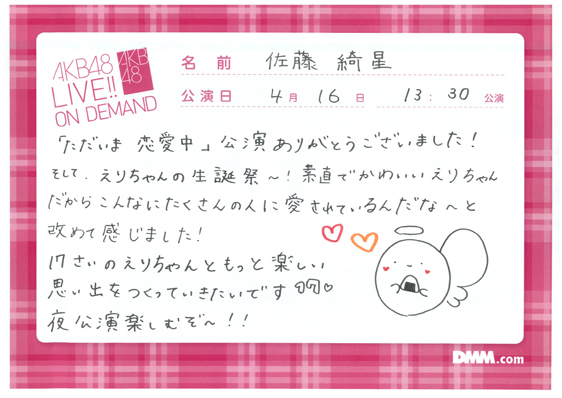 AKB48
LIVE!!
ON DEMAND
AKB
48
名前 佐藤 綺星
公演日 4月 16日 13:30公演
「ただいま 恋愛中」公演ありがとうございました!
そして、えりちゃんの生誕祭〜! 素直でかわいいえりちゃん
だからこんなにたくさんの人に愛されているんだな〜と
改めて感じました!
17さいのえりちゃんともっと楽しい
思い出をつくっていきたいです
夜公演楽しむぞ〜!!
DMM.com